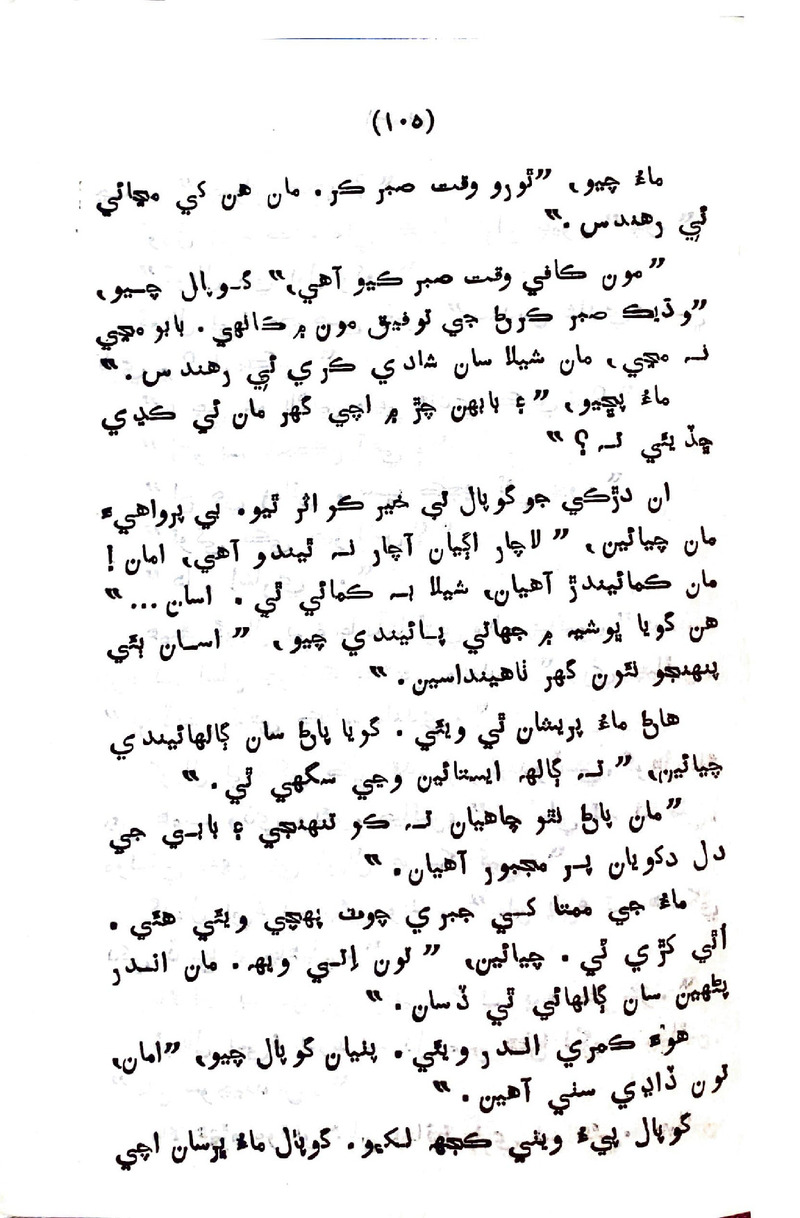 (۱۰۵)
ماءُ چيو، ”ٿورو وقت صبر ڪر. مان هن کي مڃائي
ئي رهندس.“
”مون ڪافي وقت صبر ڪيو آهي،“ گوپال چيو،
”وڌيڪ صبر ڪرڻ جي توفيق مون ۾ ڪانهي. بابو مڃي
نہ مڃي، مان شيلا سان شادي ڪري ئي رهندس.“
ماءُ پڇيو، ”۽ بابهن چڙ ۾ اچي گهر مان ئي ڪڍي
ڇڏيئي تہ؟“
ان دڙڪي جو گوپال تي خير ڪو اثر ٿيو. بي پرواهيءَ
مان چيائين، ”لاچار اڳيان آچار نہ ٿيندو آهي، امان!
مان ڪمائيندڙ آهيان، شيلا بہ ڪمائي ٿي. اسان...“
هن گويا ڀوشيہ ۾ جهاتي پائيندي چيو، ”اسان ٻئي
پنهنجو نئون گهر ٺاهينداسين.“
هاڻ ماءُ پريشان ٿي ويئي. گويا پاڻ سان ڳالهائيندي
چيائين، ”تہ ڳالهہ ايستائين وڃي سگهي ٿي.“
”مان پاڻ نٿو چاهيان تہ ڪو تنهنجي ۽ بابي جي
دل دکويان پر مجبور آهيان.“
ماءُ جي ممتا کي جبري چوٽ پهچي ويئي هئي.
اُٿي کڙي ٿي. چيائين، ”تون اِتي ويهہ. مان اندر
پڻهين سان ڳالهائي ٿي ڏسان.“
هوءَ ڪمري اندر ويئي. پٺيان گوپال چيو، ”امان،
تون ڏاڍي سٺي آهين.“
گوپال پيءُ ويٺي ڪجهہ لکيو. گوپال ماءُ ڀرسان اچي